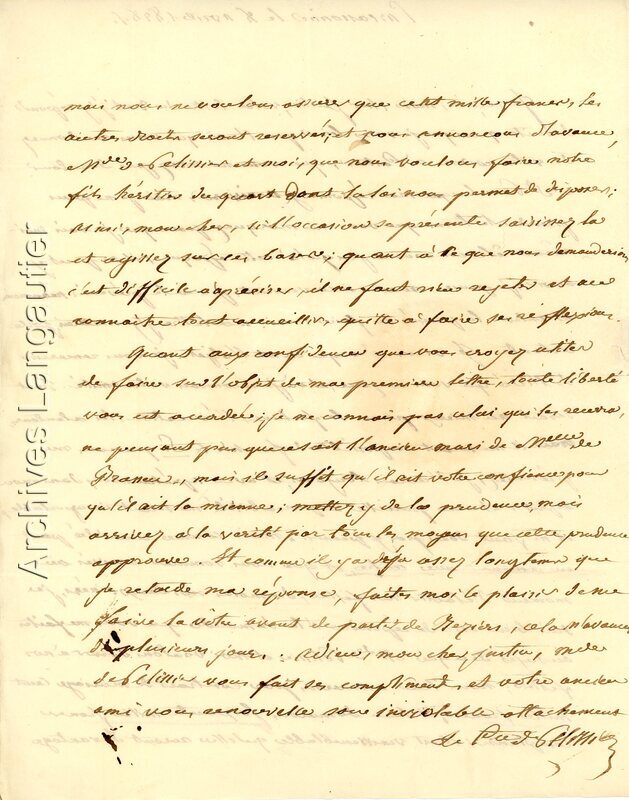 mais nous ne voulons assurer que cent mille francs, les
autres droits seront reservés, et nous annoncons d'avance,
Mde de Pelissier et moi, que nous voulons faire notre
fils héritier du quart dont la loi nous permet de disposer;
ainsi, mon cher, si l'occasion se présente saisissez la
et agissez sur ces bases; quant à ce que nous demanderions
c'est difficile a préciser, il ne faut rien rejeter et
connaitre tout accueillir, quitte à faire ses réflexions.
Quant aux confidences que vous croyez utiles
de faire sur l'objet de ma premiere lettre, toute liberté
vous est accordée; je ne connais pas celui qui les recevra,
ne pensant pas que ce soit l'ancien mari de Melle de
mais il suffit qu'il ait votre confiance pour
qu'il ait la mienne; mettez y de la prudence, mais
arrivez à la verité par tous les moyens que cette prudence
approuve. Et comme il y a déja assez longtems que
je retarde ma réponse, faites moi le plaisir de me
faire la vôtre avant de partir de Beziers, cela
de plusieurs jours. Adieu, mon cher Justin, mde
de Pelissier vous fait ses compliments et votre ancien
ami vous renouvelle son inviolable attachement
Le de Pelissier
Archives Langautier